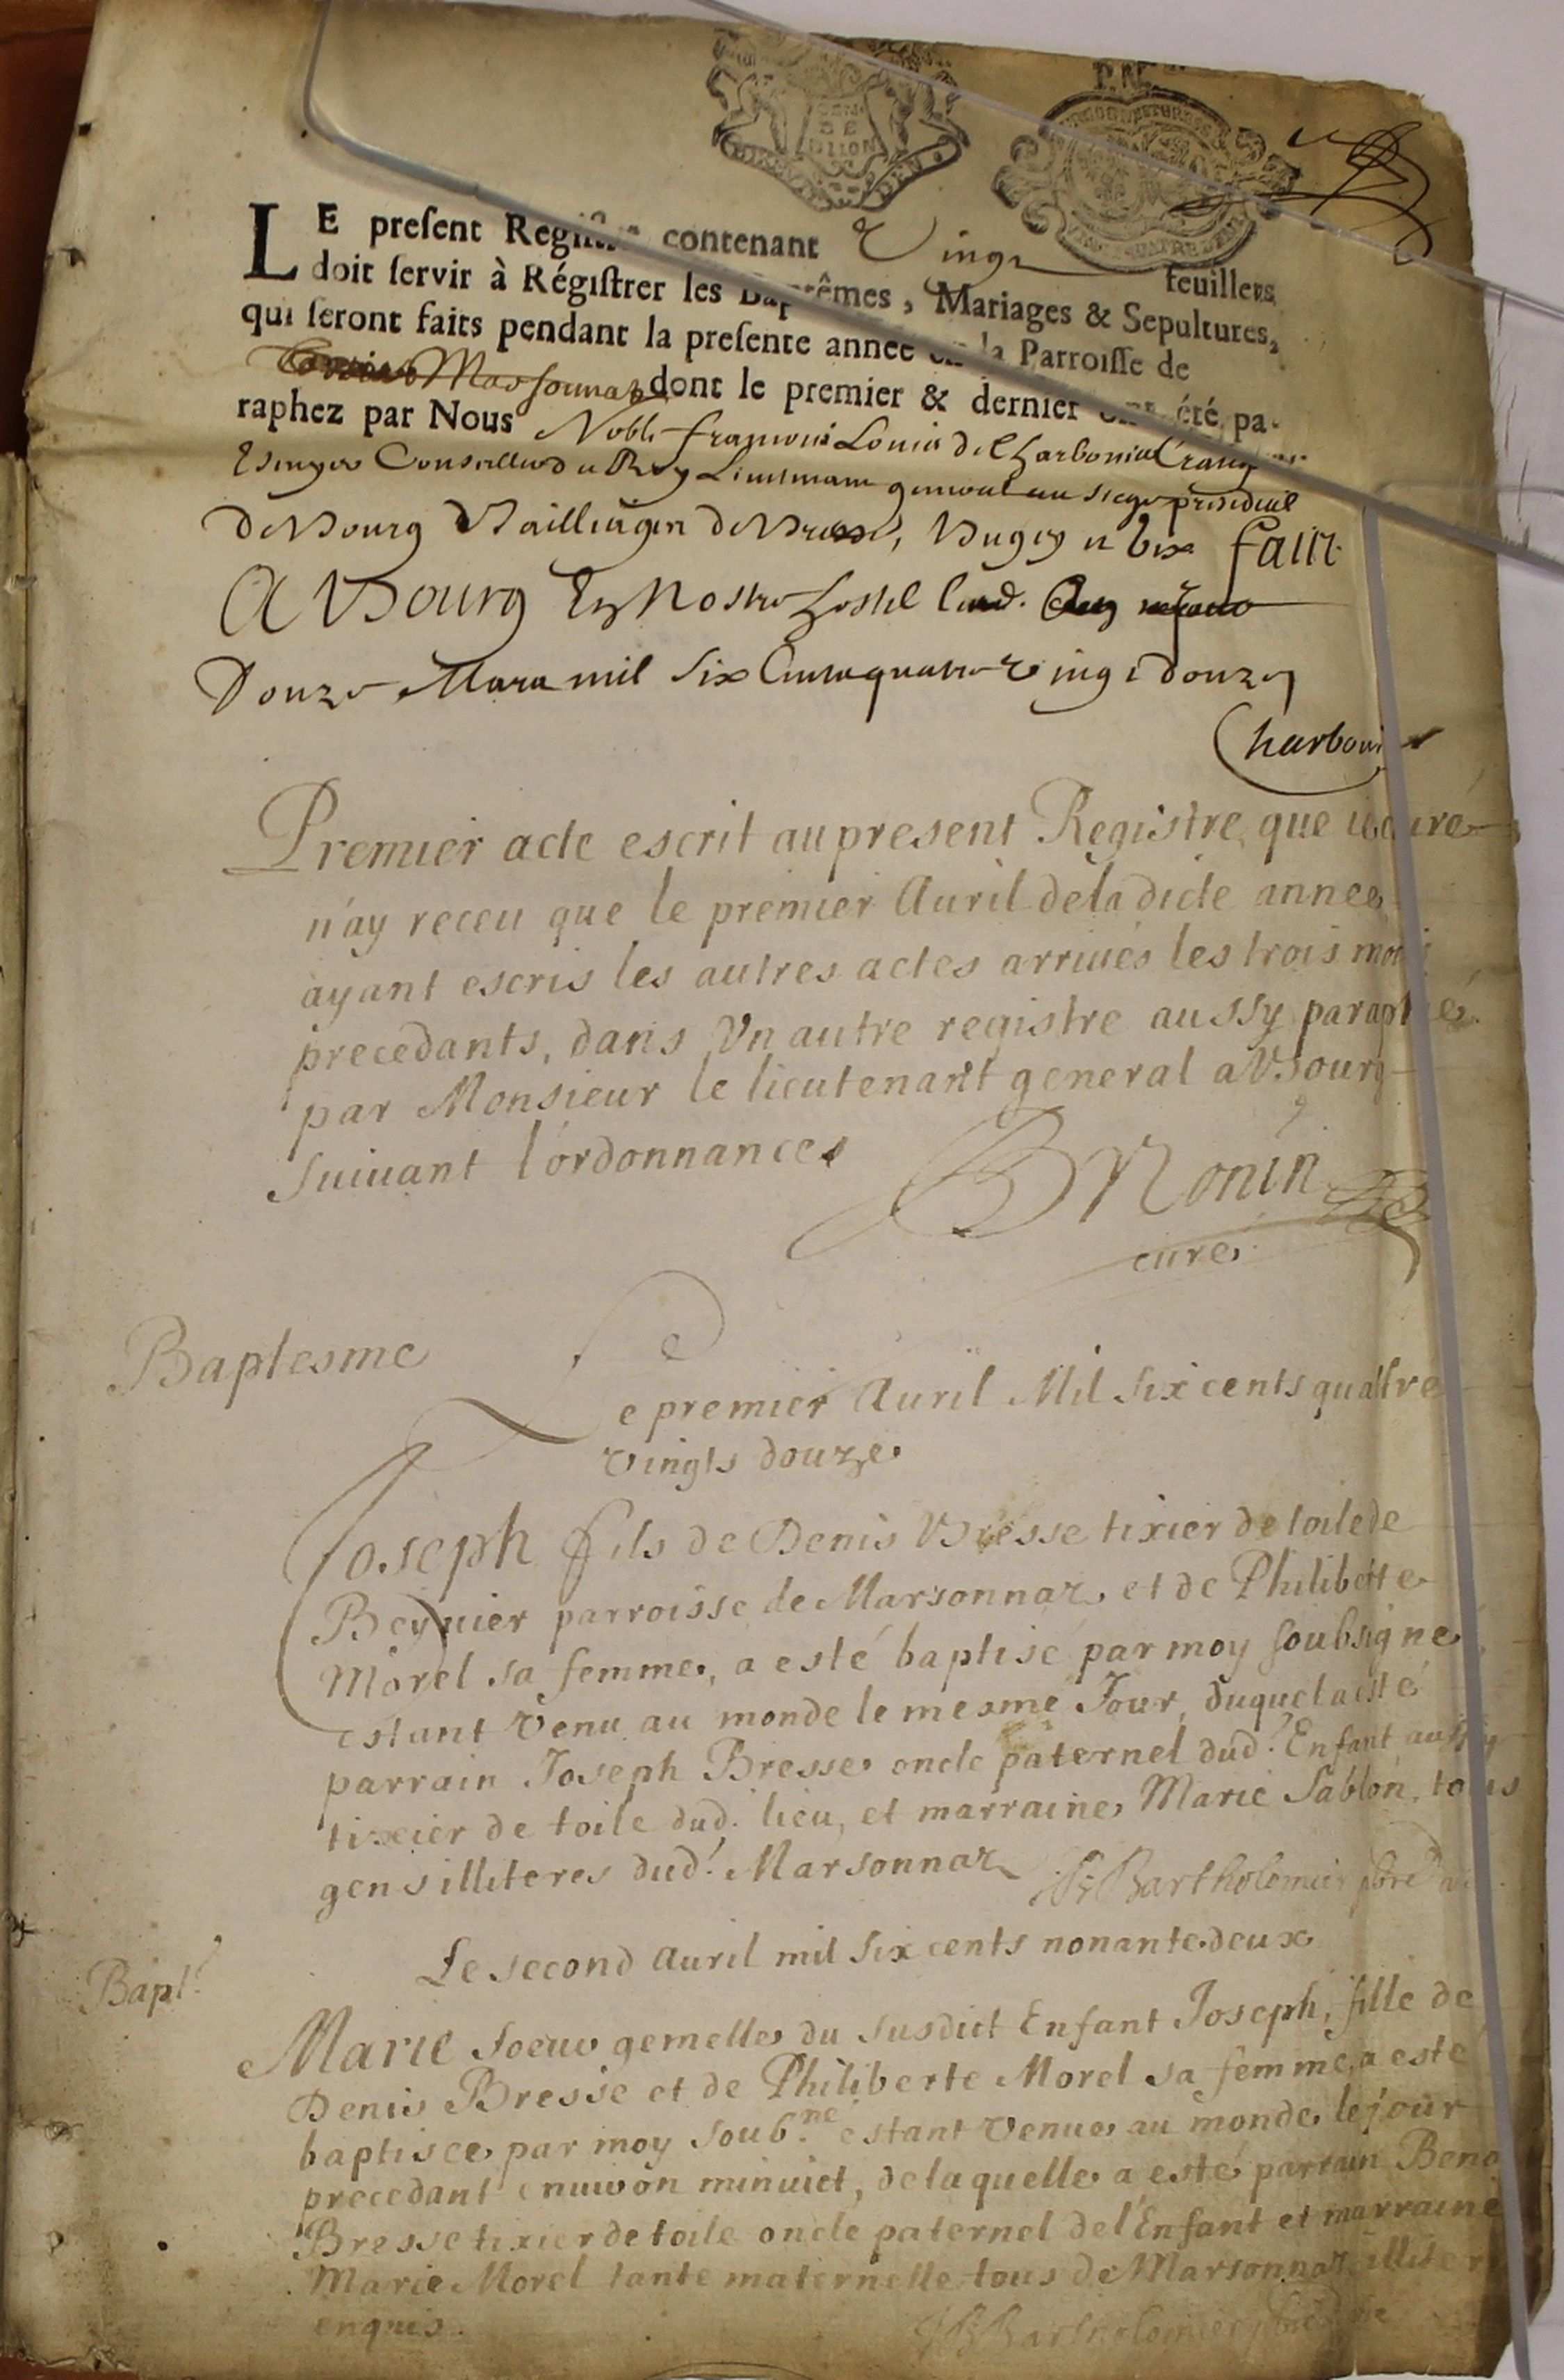 GEN.
DE
DIION
P.N.
LE preſent Regiſtre contenant Vingt feuillets
doit ſervir à Régiſtrer les Baptêmes, Mariages & Sepultures,
qui ſeront faits pendant la preſente année en la Parroiſſe de
Marsonnaz dont le premier & dernier ont été pa-
raphez par Nous Noble François Louis de Charbonier Crangeac
Escuyer Conseiller du Roy Lieutenant general au siege presidial
De Bourg Bailliage de Bresse, Bugey et Gex fait
A Bourg En Nostre hostel Lesd.
Douze Mars mil six Cents quatre vingt douze
Charbonier
Premier acte escrit au present Registre, que ie curé
n'ay receu que le premier Auril de la dicte année
ayant escris les autres actes arriués les trois mois
precedants, dans Vn autre registre aussy paraphé
par Monsieur le lieutenant general a Bourg
Suiuant l'ordonnance
B Ronin
curé
Baptesme
Le premier Auril Mil six cents quattre
vingts douze
Joseph fils de Denis Bresse tixier de toile de
Beynier parroisse de Marsonnaz, et de Philiberte
Morel sa femme, a esté baptisé par moy soubsigné
estant venu au monde le mesme Jour, duquel a esté
parrain Joseph Bresse oncle paternel dud. Enfant aussy
tixier de toile dud. lieu, et marraine Marie Sablon, tous
gens illiteres dud. Marsonnaz Bartholomier pbre
Le second Auril mil six cents nonante deux
Bapt.
Marie soeur gemelle du susdict Enfant Joseph, fille de
Denis Bresse et de Philiberte Morel sa femme, a esté
baptisee par moy soub.né estant venue au monde le jour
precedant enuiron minuict, de laquelle a esté parrain Beno
Bresse tixier de toile oncle paternel de l'Enfant et marraine
Marie Morel tante maternelle tous de Marsonnaz illitere
enquis. Bartholomier